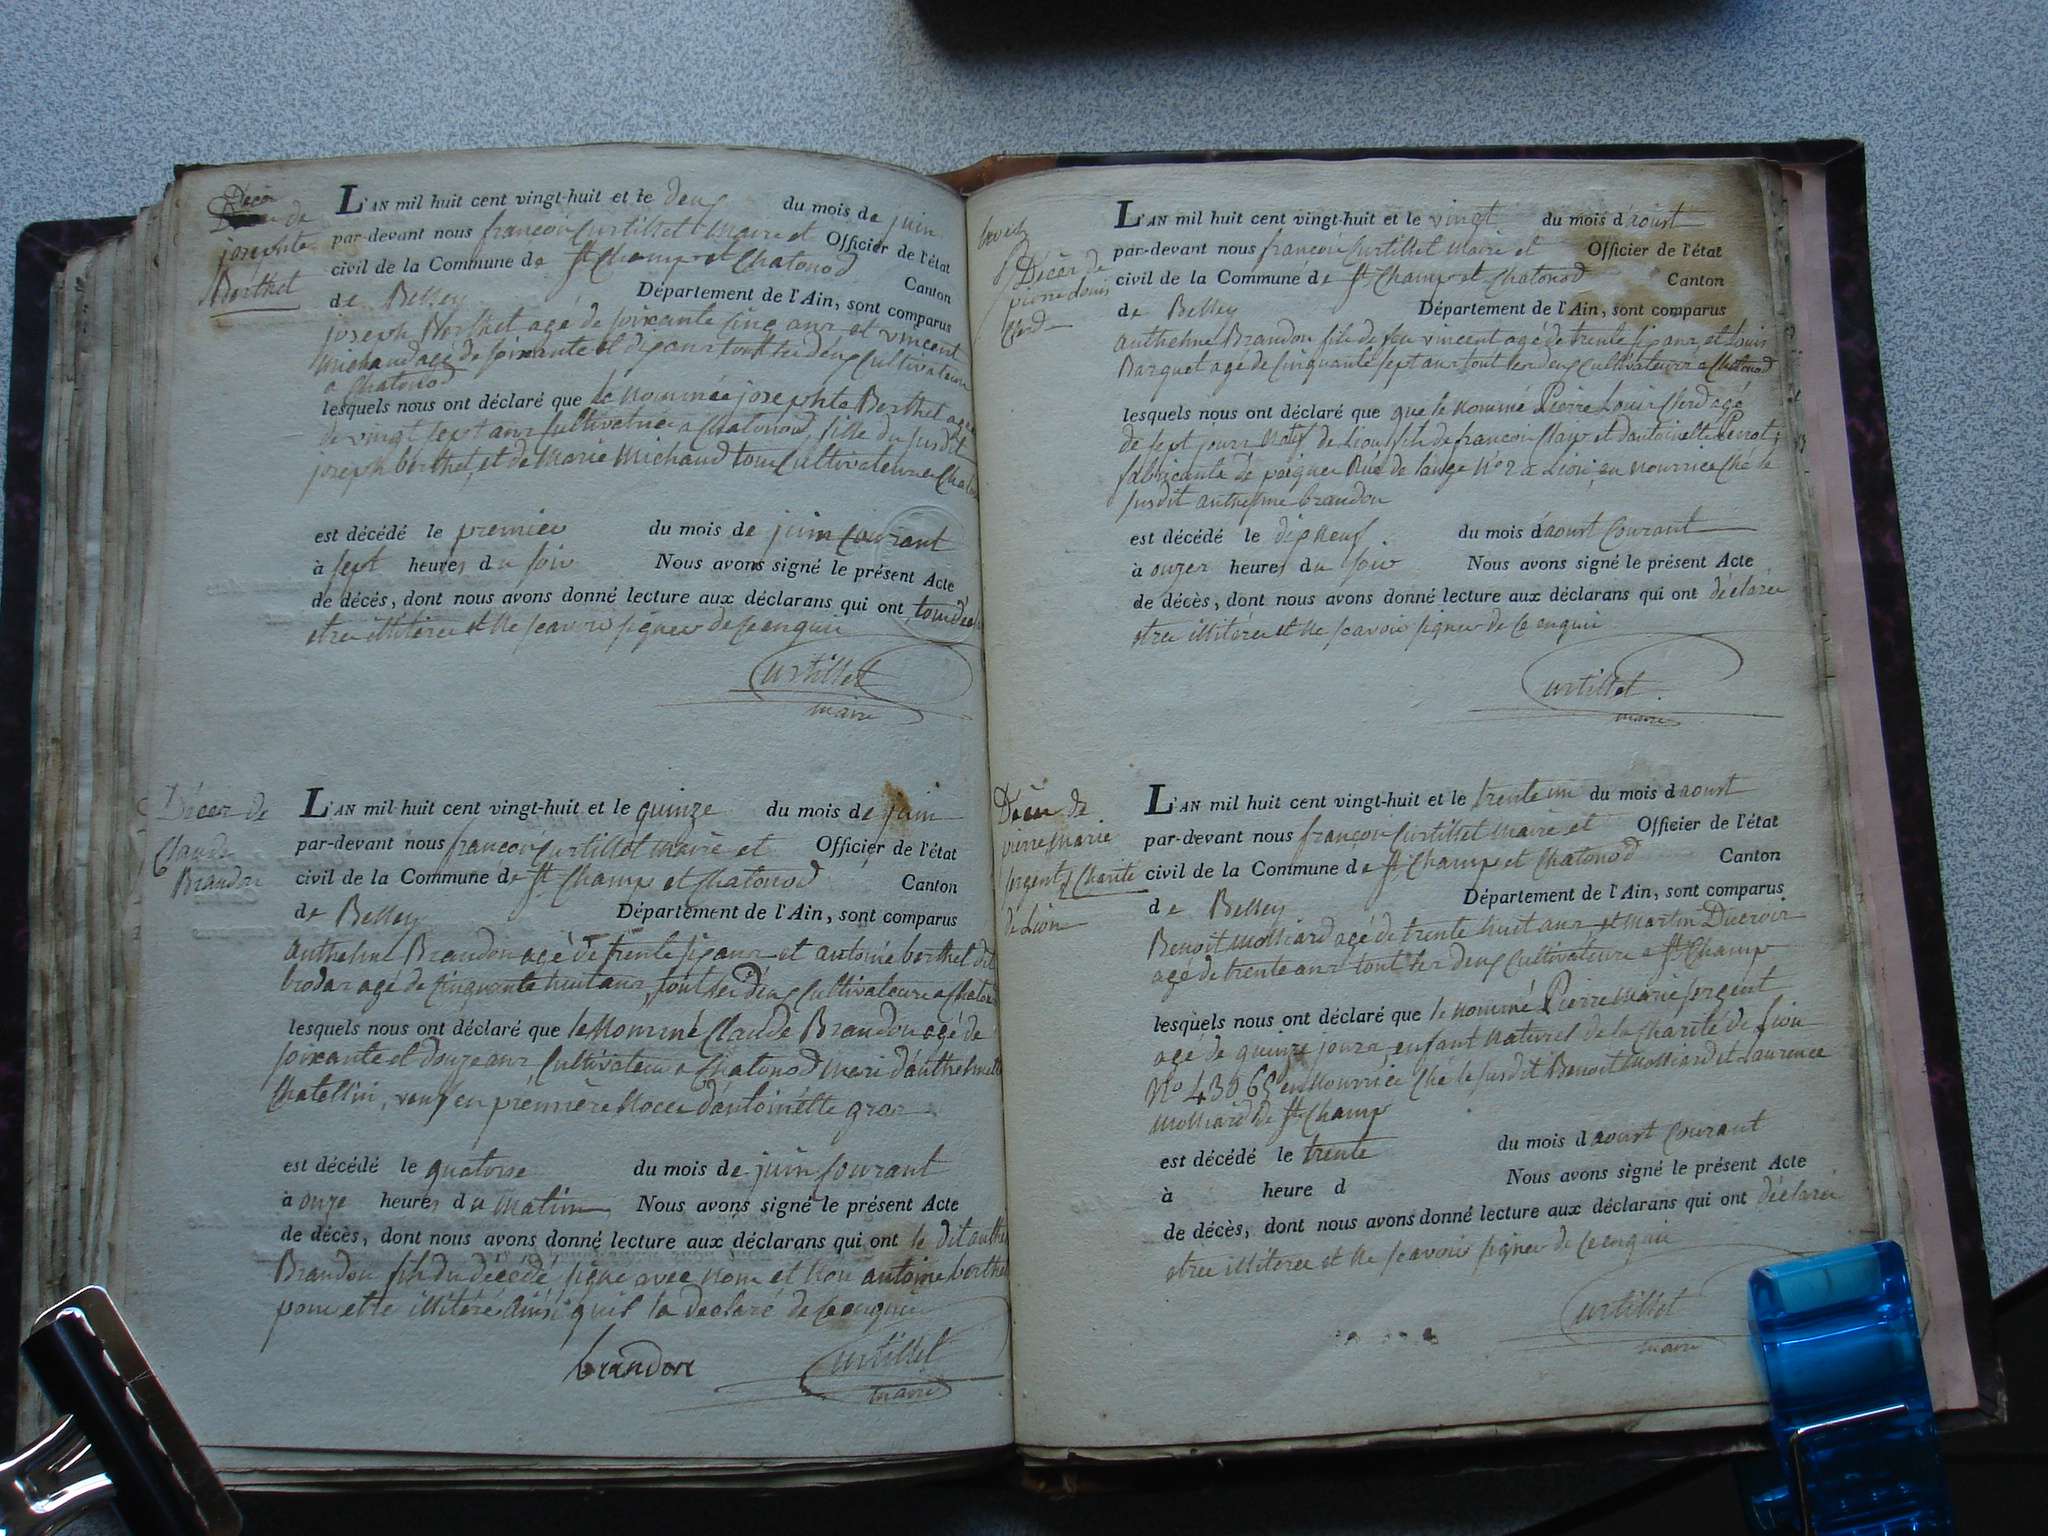 Décès
de
josephte
Berthet
L'AN mil huit cent vingt-huit et le deux du mois de juin
par-devant nous françois Curtillet Maire et Officier de l'état
civil de la Commune de St Champ et Chatonod Canton
de Belley Département de l'Ain, sont comparus
joseph Berthet agé de soixante cinq ans et vincent
Michaud agé de soixante et dix ans tout les deux Cultivateurs
a Chatonod
lesquels nous ont déclaré que le nommée josephte Berthet agée
de vingt sept ans Cultivatrice a Chatonod, fille du susdit
joseph berthet, et de Marie Michaud tous Cultivateurs a Chaton
est décédé le premier du mois de juin Courant
à sept heures du soir Nous avons signé le présent Acte
de décès, dont nous avons donné lecture aux déclarans qui ont tous
etre illitérés et ne scavoir signer de ce enquis
Curtillet
maire
Décès de
Claude
Brandon
L'AN mil huit cent vingt-huit et le quinze du mois de juin
par-devant nous françois Curtillet Maire et Officier de l'état
civil de la Commune de St Champ et Chatonod Canton
de Belley Département de l'Ain, sont comparus
Anthelme Brandon agé de trente six ans et antoine berthet dit
brodar agé de Cinquante huit ans, tout les deux Cultivateurs a Chaton
lesquels nous ont déclaré que le Nommé Claude Brandon agé de
soixante et douze ans Cultivateur a Chatonod Mari d'anthelmette
Chatellin, veuf en première Noces d'antoinette gros
est décédé le quatorse du mois de juin Courant
à onze heures du Matin Nous avons signé le présent Acte
de décès, dont nous avons donné lecture aux déclarans qui ont le dit anthe
Brandon fils du décédé signé avec nous et non antoine berthet
pour etre illitéré ainsi quil la déclaré de ce enquis
brandon
Curtillet
maire
Décès de
pierre Louis
Clerd
L'AN mil huit cent vingt-huit et le vingt du mois d'aoust
par-devant nous françois Curtillet Maire et Officier de l'état
civil de la Commune de St Champ et Chatonod Canton
de Belley Département de l'Ain, sont comparus
Anthelme Brandon fils de feu vincent agé de trente six ans, et Louis
Barquet agé de Cinquante sept ans tout les deux Cultivateurs a Chatonod
lesquels nous ont déclaré que que le nommé Pierre Louis Clerd agé
de sept jours Natif de Lion fils de françois Clair et d'antoinette Perrot
fabricants de peignes Rue de lange No 2 a Lion, en nourrice Ché le
susdit anthelme brandon
est décédé le dix neuf du mois d'aoust Courant
à onzes heures du soir Nous avons signé le présent Acte
de décès, dont nous avons donné lecture aux déclarans qui ont déclarés
etre illitérés et ne scavoir signer de ce enquis
Curtillet
maire
Décès de
pierre Marie
sergent Charité
de Lion
L'AN mil huit cent vingt-huit et le trente un du mois d'aoust
par-devant nous françois Curtillet Maire et Officier de l'état
civil de la Commune de St Champ et Chatonod Canton
de Belley Département de l'Ain, sont comparus
Benoit Molliard agé de trente huit ans et Martin Ducroix
agé de trente ans tout les deux Cultivateurs a St Champ
lesquels nous ont déclaré que le nommé Pierre Marie sergent
agé de quinze jours, enfant Naturel de la Charité de Lion
No en Nourrice Ché le susdit Benoit Molliard et Laurence
Molliard de St Champ
est décédé le trente du mois d'aoust Courant
à heure d Nous avons signé le présent Acte
de décès, dont nous avons donné lecture aux déclarans qui ont déclarés
etre illitérés et ne scavoir signer de ce enquis
Curtillet
maire